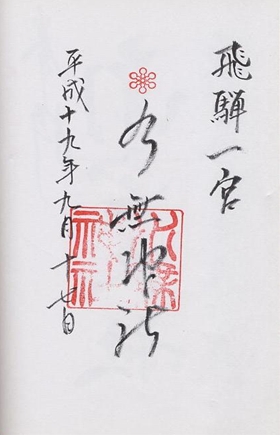 飛騨一宮
水無神社
平成十九年九月十七日